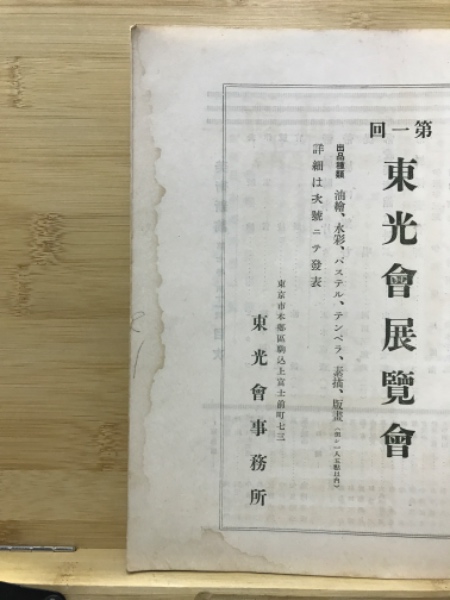 第一回
東光會展覽會
出品種類 油繪、水彩、パステル、テンペラ、素描、版畫(但シ一人五點以内)
詳細は次號ニテ發表
東京市本郷區駒込上富士前町七三
東光會事務所